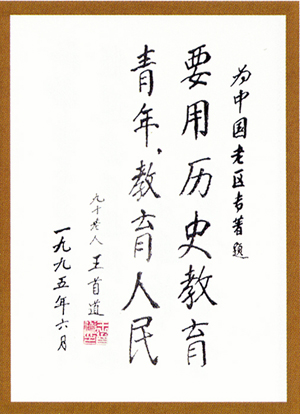 为中国老区专著题
要用历史教育
青年，教育人民
九十老人 王首道
一九九五年六月